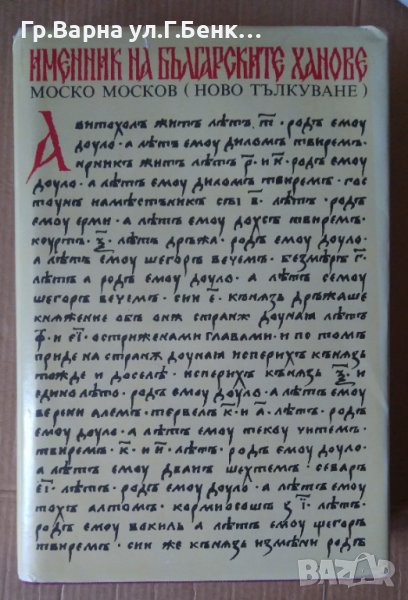 Гр.Варна ул.Г.Бенк...
ИМЕННИК НА БЪЛГАРСКИТЕ ХАНОВЕ
МОСКО МОСКОВ ( НОВО ТЪЛКУВАНЕ )
Авитохолъ житъ лѣтъ т҃ · родъ емоу
доуло · а лѣтъ емоу диломъ твиремъ ·
ирникъ житъ лѣтъ р҃ · и и҃ · родъ емоу
доуло · а лѣтъ емоу диломъ твиремъ · гос
тоунъ намѣстьникъ съı в҃ · лѣтъ · родъ
емоу ерми · а лѣтъ емоу дохсъ твиремъ ·
коуртъ · ѯ҃ · лѣтъ дръжа · родъ емоу доуло ·
а лѣтъ емоу шегоръ вечемъ · безмѣръ г҃ ·
лѣтъ а родъ емоу доуло · а лѣтъ семоу
шегоръ вечемъ · сии е҃ · кънѧзь дръжаше
кнѧжение объ онѫ странѫ доунаıа лѣтъ
ф҃ · и еı҃ · остриженами главами · и по томъ
приде на странѫ доунаıа исперихъ кънѧзь
тожде и доселѣ · исперихъ кънѧзь ѯ҃ и
едино лѣто · родъ емоу доуло · а лѣтъ емоу
верени алемъ · тервелъ к҃ · и а҃ · лѣтъ · родъ
емоу доуло · а лѣтъ емоу текоу читемъ ·
твиремъ · к҃ · и и҃ · лѣтъ · родъ емоу доуло ·
а лѣтъ емоу дванъ шехтемъ · севаръ
еı҃ · лѣтъ · родъ емоу доуло · а лѣтъ емоу
тохъ алтомъ · кормисошъ з҃ ı҃ · лѣтъ ·
родъ емоу вокиль а лѣтъ емоу шегоръ
твиремъ · сии же кънѧзь измѣни родъ
BAZAR